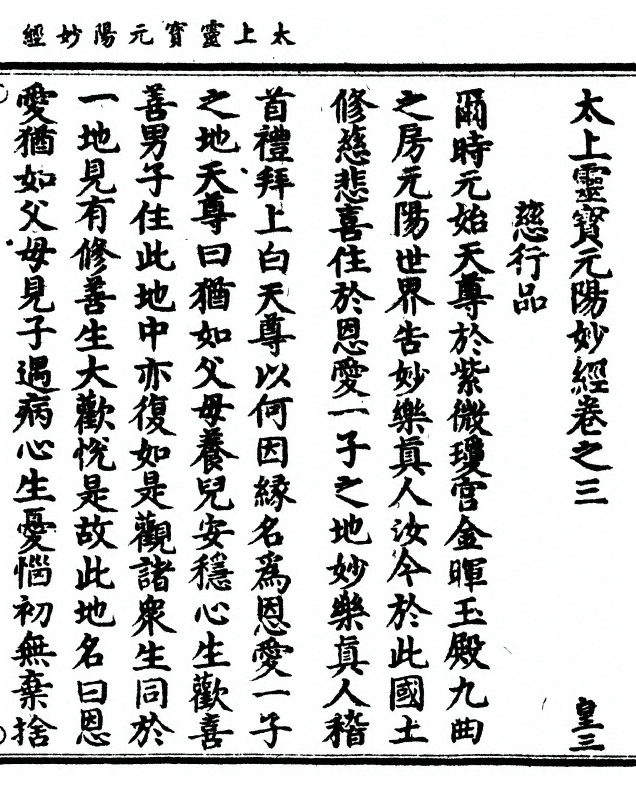 太上靈寳元陽妙經
太上靈寳元陽妙經卷之三
皇三
慈行品
爾時元始天尊於紫微瓊宫金暉玉殿九曲
之房元陽世界告妙樂真人汝今於此國土
修慈悲喜住於恩愛一子之地妙樂真人稽
首禮拜上白天尊以何因緣名爲恩愛一子
之地天尊曰猶如父母養兒安穩心生歡喜
善男子住此地中亦復如是觀諸衆生同於
一地見有修善生大歡悅是故此地名曰恩
愛猶如父母見子遇病心生憂惱初無棄捨